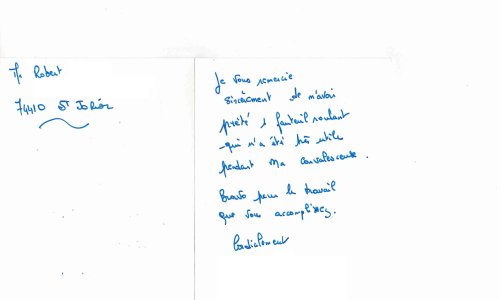 Mr Robert
74410 St Jorioz
Je vous remercie
sincèrement de m'avoir
prêté 1 fauteuil roulant
qui m'a été très utile
pendant ma convalescence.
Bravo pour le travail
que vous accomplissez.
Cordialement